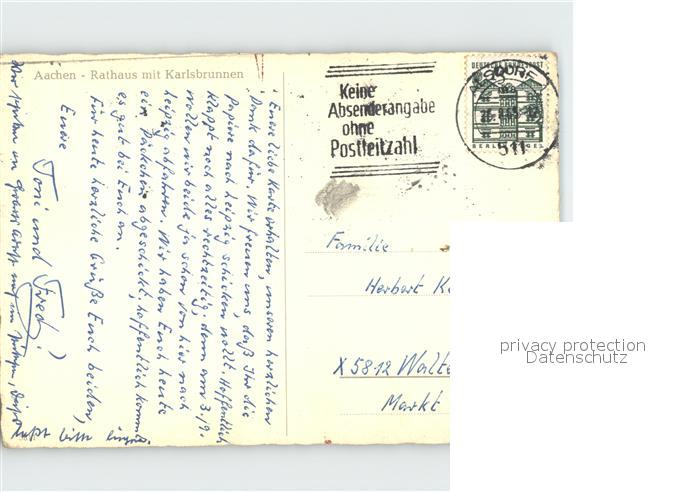 Aachen - Rathaus mit Karlsbrunnen
Eure liebe Karte erhalten, unseren herzlichen
Dank dafür. Wir freuen uns, daß Ihr die
Papiere nach Leipzig schicken wollt. Hoffentlich
klappt noch alles rechtzeitig, denn am 3.19.
wollen wir beide ja schon von hier nach
Leipzig abfahren. Wir haben Euch heute
ein Päckchen abgeschickt, hoffentlich kommt
es gut bei Euch an.
Für heute herzliche Grüße Euch beiden,
Eure
Toni und Fred.
bitte
Keine
Absenderangabe
ohne
Postleitzahl
ALSDORF
511
DEUTSCHE BUNDESPOST
BERLIN TEGEL
Familie
Herbert
X 5812 Walte
Markt
privacy protection
Datenschutz